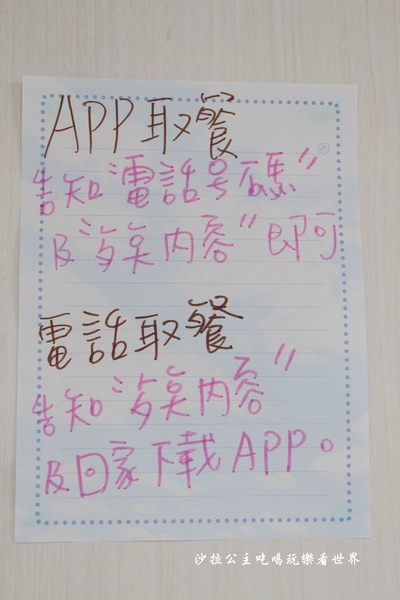 APP取餐
告知"電話号碼"
及"餐点內容"即可
電話取餐
告知"餐点內容"
及回家下載APP。
沙拉公主吃喝玩樂看世界